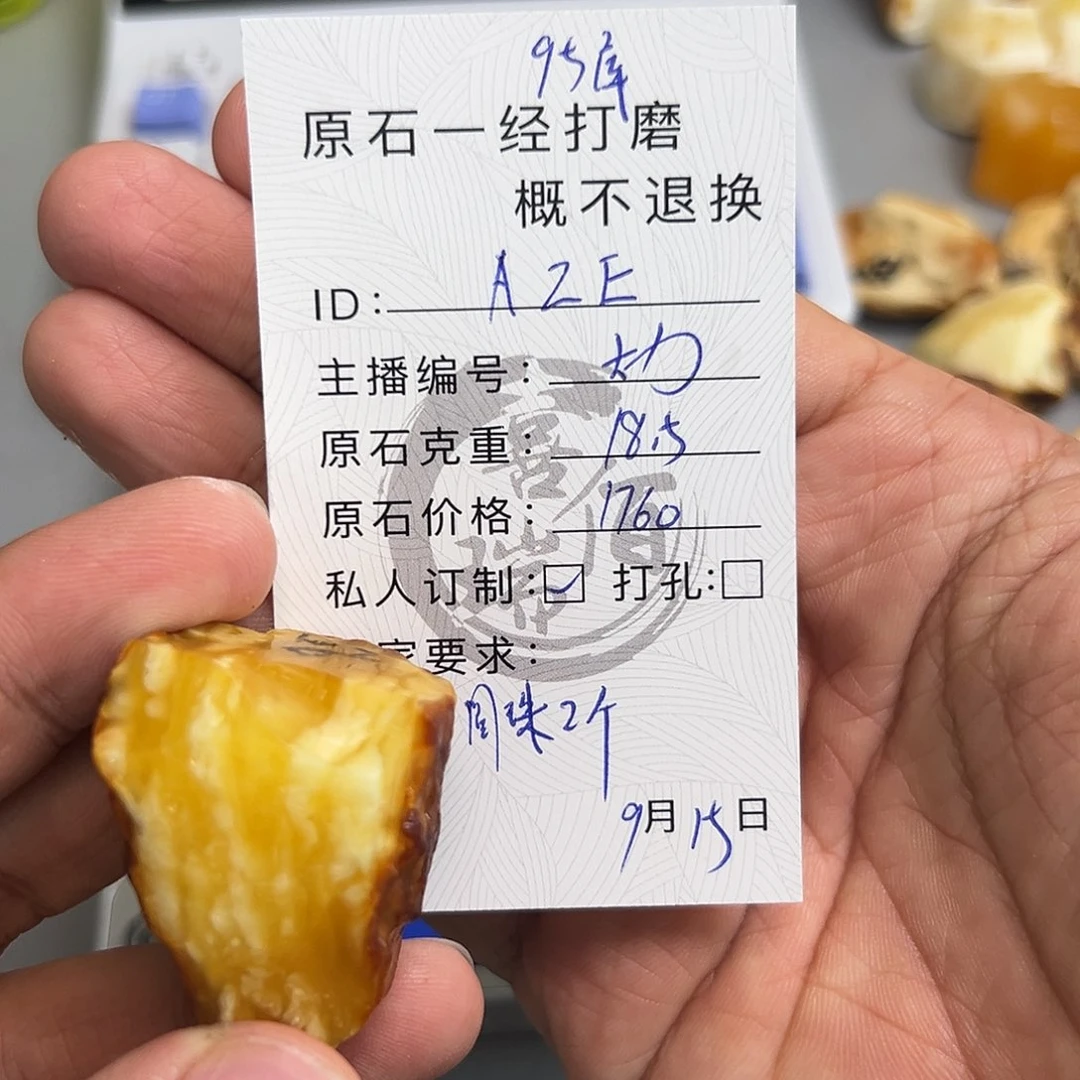 95库
原石一经打磨
概不退换
ID：AZE
主播编号：大力
原石克重：18.5
原石价格：1760
私人订制：☑ 打孔：☐
家要求：
圆珠2个
9月15日
喜厚瑞